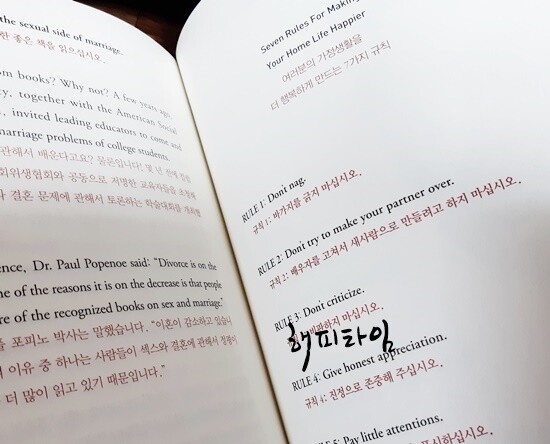 the sexual side of marriage.
한 좋은 책을 읽으십시오.
om books? Why not? A few years ago,
ty, together with the American Social
., invited leading educators to come and
marriage problems of college students.
관해서 배운다고요? 물론입니다! 몇 년 전에
회위생협회와 공동으로 저명한 교육자들을 초청해
과 결혼 문제에 관해서 토론하는 학술대회를 개최했
ence, Dr. Paul Popenoe said: "Divorce is on the
ne of the reasons it is on the decrease is that people
re of the recognized books on sex and marriage."
를 포피노 박사는 말했습니다. "이혼이 감소하고 있습니
이유 중 하나는 사람들이 섹스와 결혼에 관해서 정평이
더 많이 읽고 있기 때문입니다."
Seven Rules For Making
Your Home Life Happier
여러분의 가정생활을
더 행복하게 만드는 7가지 규칙
RULE 1: Don't nag.
규칙 1: 바가지를 긁지 마십시오.
RULE 2: Don't try to make your partner over.
규칙 2: 배우자를 고쳐서 새사람으로 만들려고 하지 마십시오.
RULE 3: Don't criticize.
비판하지 마십시오.
해피타임
RULE 4: Give honest appreciation.
규칙 4: 진정으로 존중해 주십시오.
5: Pay little attentions.